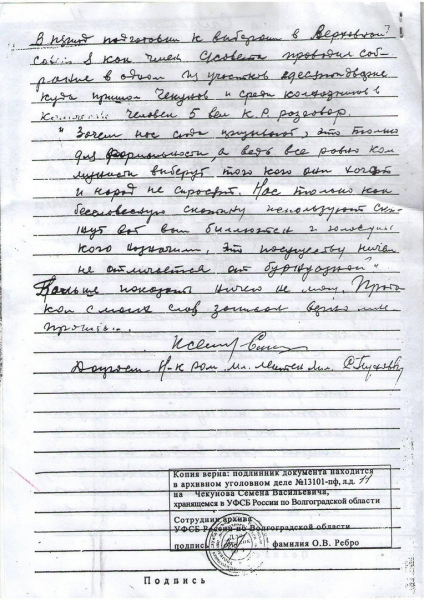 В период подготовки к выборам в Верховный
Совет я как член с/совета проводил соб-
рание в одном из участков
куда пришол Чекунов и среди колхозников в
человек 5 вел К.Р. разговор.
"Зачем нас сюда призывают, это только
для формальности, а ведь все равно ком-
мунисты выберут того кого они хотят
и народ не спросят. Нас только как
бессловесную скотину используют
вот вам биллютень и голосуй
кого назначим, это по существу ничем
не отличается от буржуазной"
Больше показать ничего не могу. Прото
кол с моих слов записан верно мне
Допросил Н-к РОМ мл. лейтен. мил.
Копия верна: подлинник документа находится
в архивном уголовном деле №13101-пф, л.д. 11
на Чекунова Семена Васильевича,
хранящемся в УФСБ России по Волгоградской области
Сотрудник архива
УФСБ России по Волгоградской области
подпись фамилия О.В. Ребро
Подпись